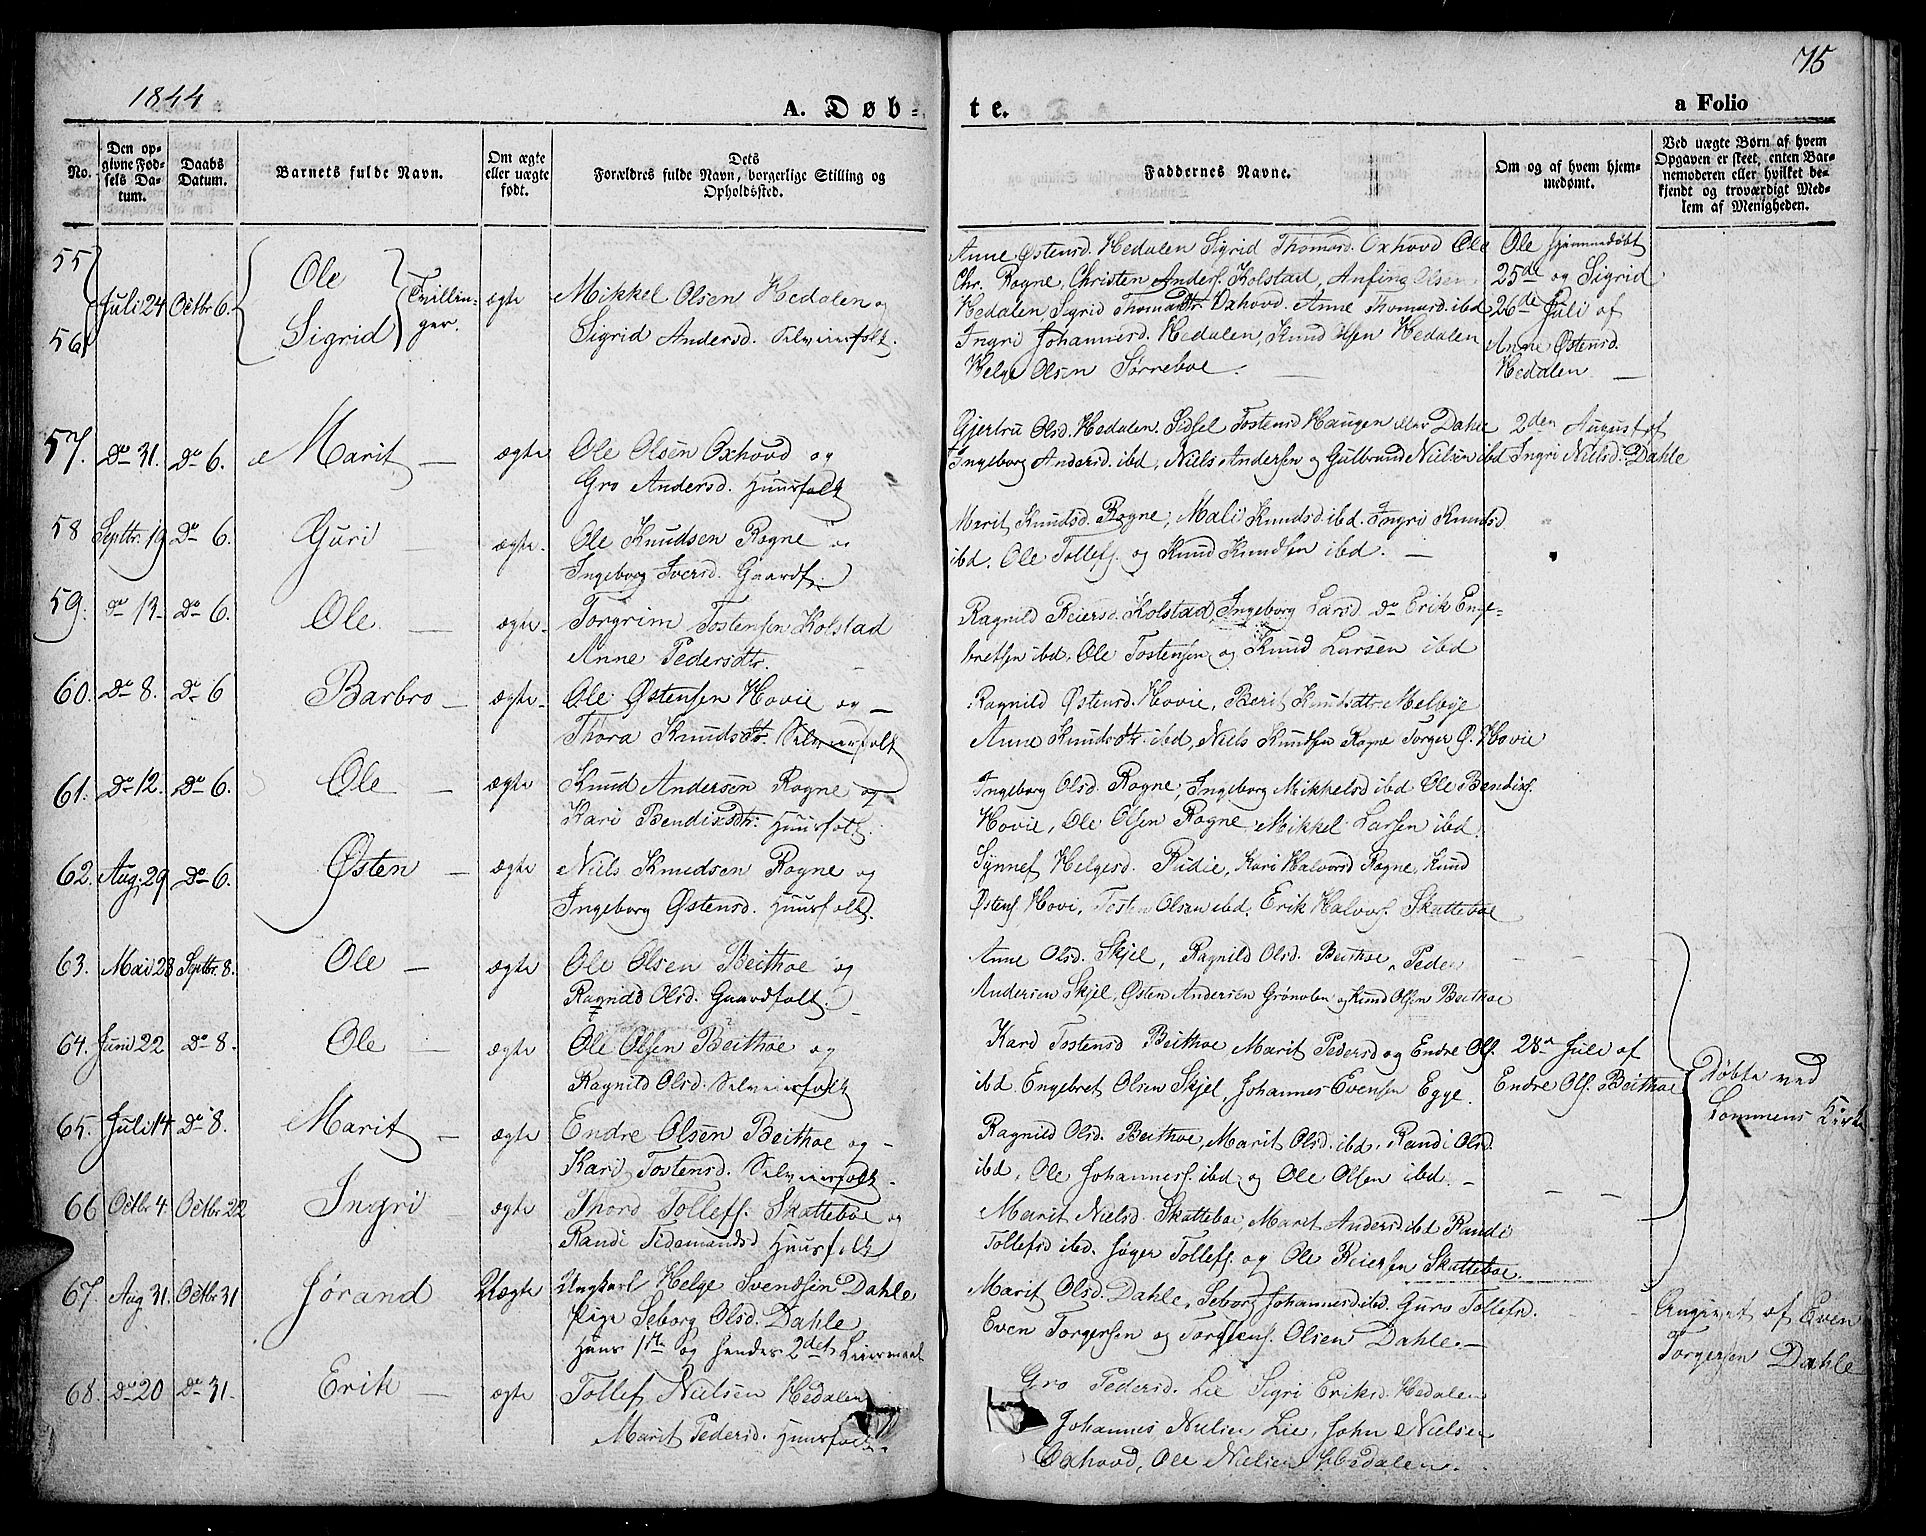 1844
75
A. Døb-
te.
a Folio
No.
Den op-
givne Fød-
sels Da-
tum.
Daabs
Datum.
Barnets fulde Navn.
Om ægte
eller uægte
født.
Dets
Forældres fulde Navn, borgerlige Stilling og
Opholdssted.
Faddernes Navne.
Om og af hvem hjem-
medømt.
Ved uægte Børn af hvem
Opgaven er skeet, enten Bar-
nemoderen eller hvilket be-
kjendt og troværdigt Med-
lem af Menigheden.
55
56
Juli 24
Octbr 6.
Ole
Sigrid
Tvillin-
ger.
ægte
Mikkel Olsen Hedalen og
Sigrid Andersd. Selveierfolk.
Anne Østensd. Hedalen Sigrid Thomasd. Oxhovd Ole
Chr. Rogne, Christen Anders. Kolstad, Anfind Olsen
Hedalen, Sigrid Thomasdtr Oxhovd. Anne Thomasd. ibd
Ingri Johannesd. Hedalen, Knud Olsen Hedalen
Helge Olsen Sørreboe.
Ole hjemmedøbt
25de og Sigrid
26de Juli af
Anne Østensd.
Hedalen
57. Do 31. Do 6.
Marit
ægte
Ole Olsen Oxhovd og
Gro Andersd. Huusfolk
Gjertru Olsd. Hedalen. Sidsel Tostensd Haugen eller Dahle
Ingeborg Andersd. ibd, Niels Andersen og Gulbrand Nielsen ibd
2den August af
Ingri Nielsd. Dahle
58 Septbr. 19 Do 6.
Guri
ægte.
Ole Knudsen Rogne og
Ingeborg Iversd. Gaardf.
Marit Knudsd. Rogne, Mali Knudsd ibd. Ingri Knudsd
ibd. Ole Tollefs. og Knud Knudsen ibd.
59. do 13. Do 6.
Ole
ægte.
Torgrim Tostensen Kolstad
Anne Pedersdtr.
Ragnild Reiersd. Kolstad, Ingeborg Larsd do Erik Enge-
bretsen ibd. Ole Tostensen og Knud Larsen ibd
60. Do 8. Do 6
Barbro
ægte.
Ole Østensen Hovie og
Thora Knudsdtr. Selveierfolk
Ragnild Østensd. Hovie, Berit Knudsdtr Melbye
Anne Knudsdtr ibd, Niels Knudsen Rogne Torger Ø. Hovie
61. Do 12. Do 6.
Ole
ægte
Knud Andersen Rogne og
Kari Bendixdtr. Huusfolk.
Ingeborg Olsd. Rogne, Ingeborg Mikkelsd ibd Ole Bendixs.
Hovie, Ole Olsen Rogne Mikkel Larsen ibd.
62. Aug. 29 Do 6.
Østen
ægte
Niels Knudsen Rogne og
Ingeborg Østensd. Huusfolk.
Synnef Helgesd. Ridie, Kari Halvorsd Rogne, Knud
Østens. Hovi, Tosten Olsen ibd. Erik Halvors. Skatteboe
63. Mai 28 Septbr. 8.
Ole
ægte
Ole Olsen Beithoe og
Ragnild Olsd. Gaardfolk.
Anne Olsd. Skjel, Ragnild Olsd. Beithoe, Peder
Andersen Skjel, Østen Andersen Grønolen og Knud Olsen Beithoe
64. Juni 22 Do 8.
Ole
ægte
Ole Olsen Beithoe og
Ragnild Olsd. Selveierfolk
Kari Tostensd Beithoe, Marit Pedersd og Endre Ols.
ibd. Engebret Olsen Skjel, Johannes Evensen Egge.
28de Juli af
Endre Ols. Beithoe
Døbte ved
Lommens Kirke
65. Juli 14 Do 8.
Marit
ægte
Endre Olsen Beithoe og
Kari Tostensd. Selveierfolk.
Ragnild Olsd. Beithoe, Marit Olsd. ibd. Randi Olsd.
ibd, Ole Johanness. ibd. og Ole Olsen ibd.
66 Octbr 4. Octbr 22
Ingri
ægte
Thord Tollefs. Skatteboe og
Randi Tidemandsd Huusfolk
Marit Nielsd. Skatteboe, Marit Andersd ibd Randi
Tollefsd ibd. Tollefs. og Ole Reiersen Skatteboe
67. Aug 31. Octbr 31
Jørand
Uægte
Ungkarl Helge Svendsen Dahle
Pige Seborg Olsd. Dahle
Hans 1ste og hendes 2det Leiermaal
Marit Olsd. Dahle, Seborg Johannesd ibd. Guro Tollefsd.
Even Torgersen og Torstens. Olsen Dahle.
Angivet af Even
Torgersen Dahle
68. Do 20 Do 31.
Erik
ægte
Tollef Nielsen Hedalen
Marit Pedersd. Huusfolk.
Gro Pedersd. Lie Sigri Eriksd. Hedalen
Johannes Nielsen Lie, John Nielsen
Oxhovd, Ole Nielsen Hedalen.